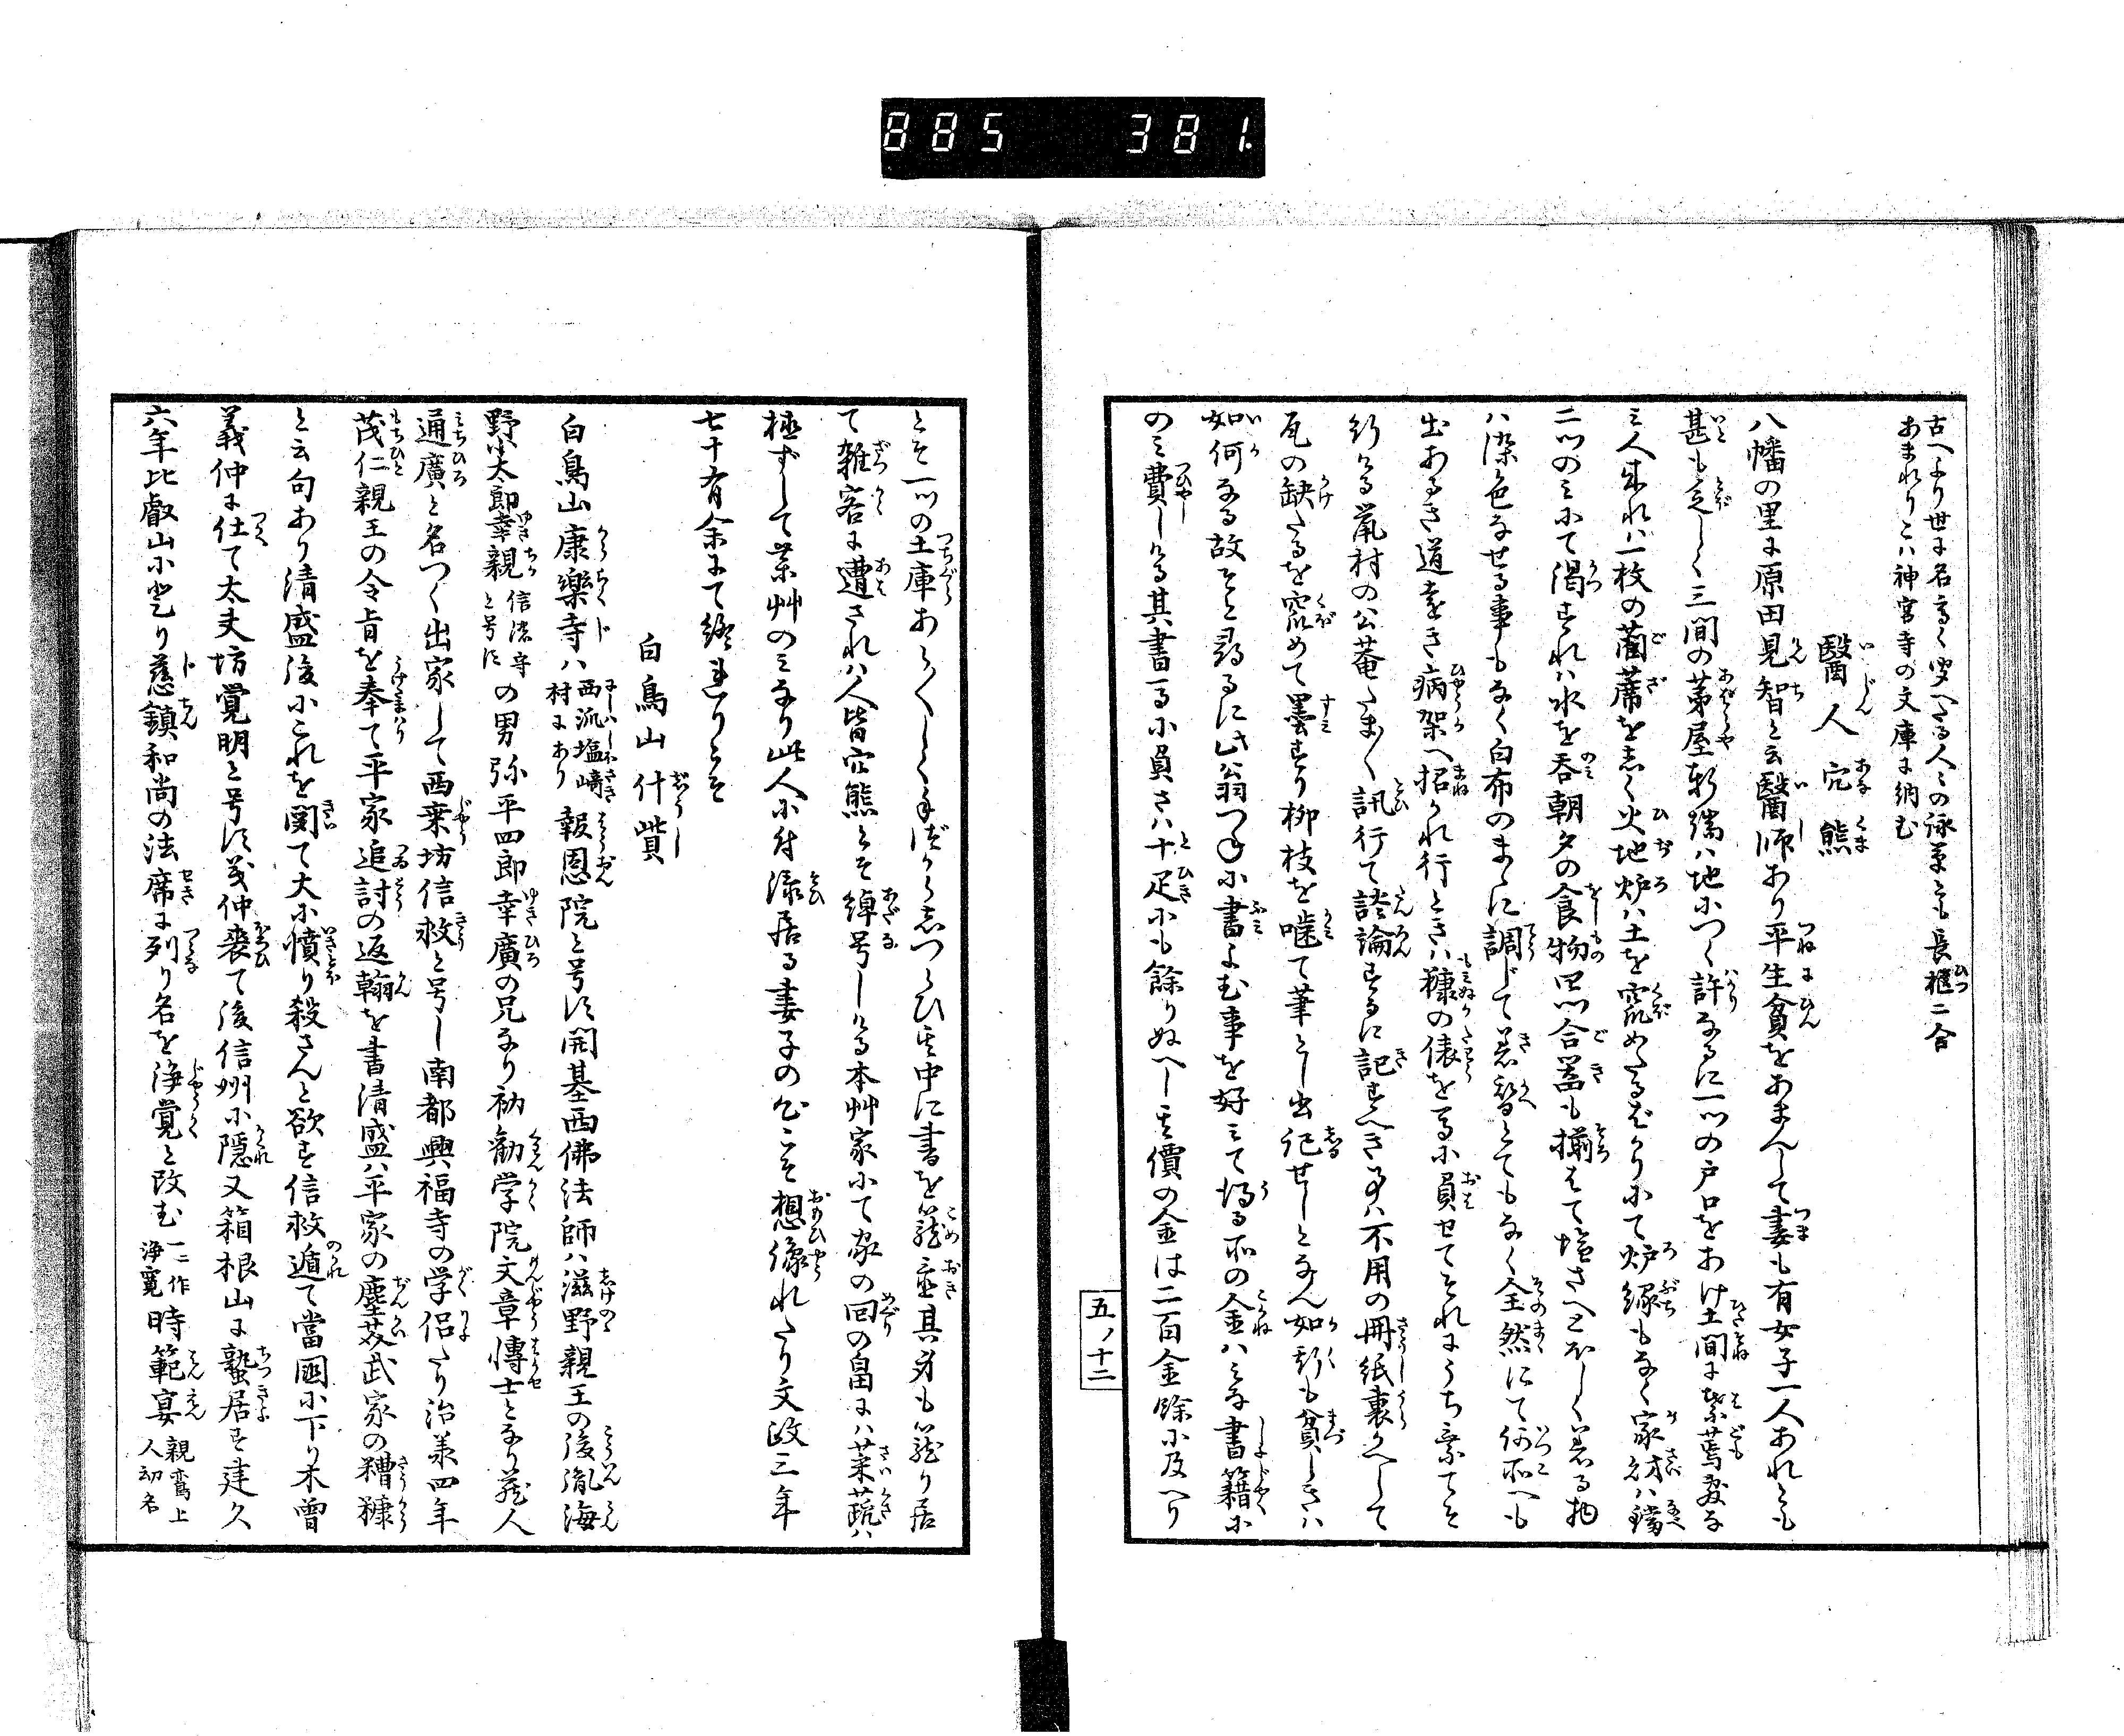 885 381.
古へより世に名高く聞へたる人々の詠草とも長櫃二合
あまれりこハ神宮寺の文庫に納む
醫人 穴熊
八幡の里に原田見智と云醫師あり平生貧をあまんして妻も有女子一人あれとも
甚も乏しく三間の茅屋軒端ハ地につく許なるに一ツの戸口をあけ土間に
三人来れハ一枚の藺蓆をしく火地炉ハ土を窊めたるばかりにて炉縁もなく家財ハ鐺
二ツのミにて渇すれハ水を呑朝夕の食物四ツ合器も揃はて塩さへとぼしく着る物
ハ染色なせる事もなく白布のまゝに調じて着替とてもなく全然にて何所へも
出あるき道遠き病架へ招かれ行ときハ糠の俵を馬に員せてそれにうち乗てそ
行ける 村の公菴 訊行て談論するに記すへき事ハ不用の冊紙裏かへして
瓦の缺たるを窊めて墨すり柳枝を噛て筆とし書記せしとなん如斯も貧しきハ
如何なる故そと尋るに此翁つねに書よむ事を好ミて得る所の金ハミな書籍に
のミ費しける其書一る小員さハ十疋にも餘りぬへし其價の金は二百金餘に及へり
五ノ十二
とそ一ツの土庫あらく しつらひ其中に書を籠置其身も籠り居
て雑客に遭されハ人皆穴熊とそ綽号しける本艸家にて家の回の畠にハ菜蔬ハ
極ずして薬艸のミなり此人に付添居る妻子の心こそ想像れたり文政三年
七十有余にて終れりとそ
白鳥山什貲
白鳥山康樂寺ハ西派塩崎村にあり報恩院と号す開基西佛法師ハ滋野親王の後胤海
野小太郎幸親信濃守と号すの男弥平四郎幸廣の兄なり初勧学院文章博士となり蔵人
通廣と名つく出家して西乗坊信救と号し南都興福寺の学侶たり治承四年
茂仁親王の令旨を奉て平家追討の返翰を書清盛ハ平家の塵芥武家の糟糠
と云句あり清盛後にこれを閲て大に憤り殺さんと欲す信救遁て當國に下り木曽
義仲に仕て太夫坊覚明と号す義仲喪て後信州に隠又箱根山に蟄居す建久
六年比叡山に登り慈鎮和尚の法席に列り名を浄覚と改む一ニ作浄寛時範宴親鸞上人初名